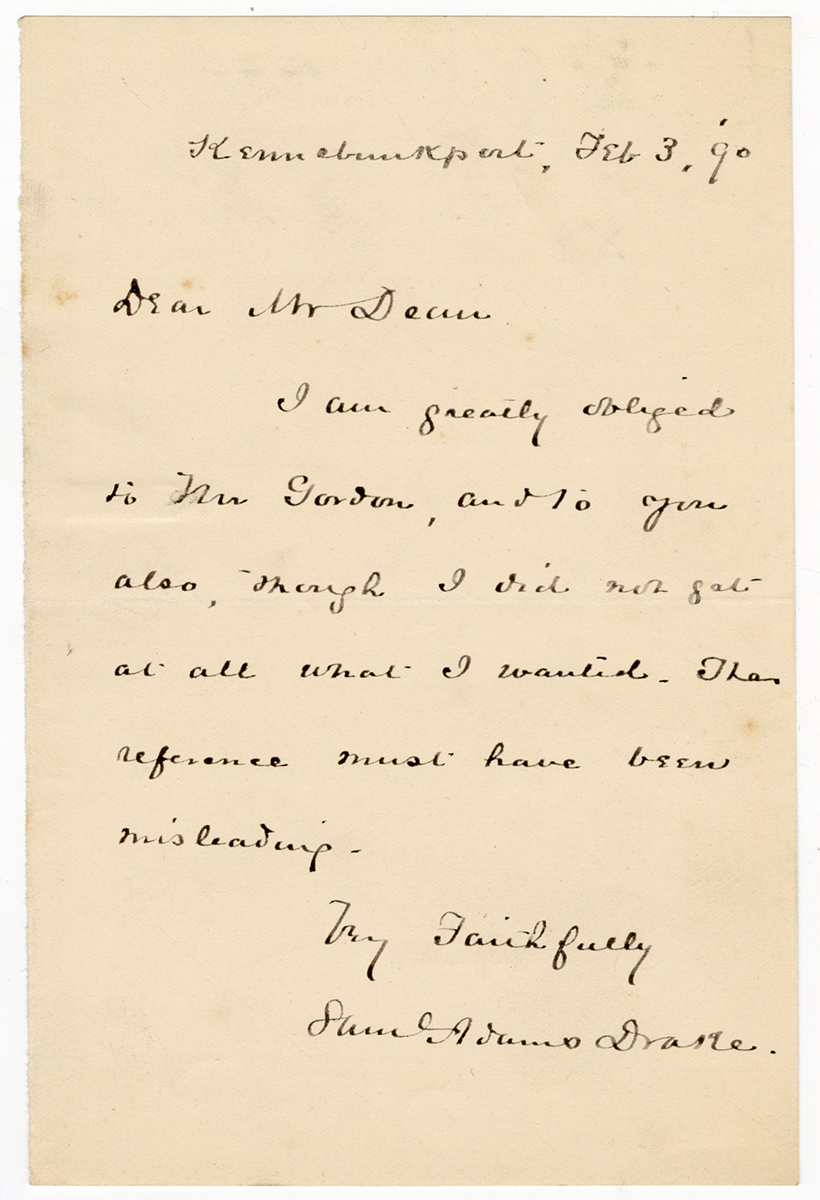 Kennebunkport, Feb 3, '90
Dear Mr Dean
I am greatly obliged
to Mr Gordon, and to you
also, though I did not get
at all what I wanted. The
reference must have been
misleading.
Very Faithfully
Saml Adams Drake.